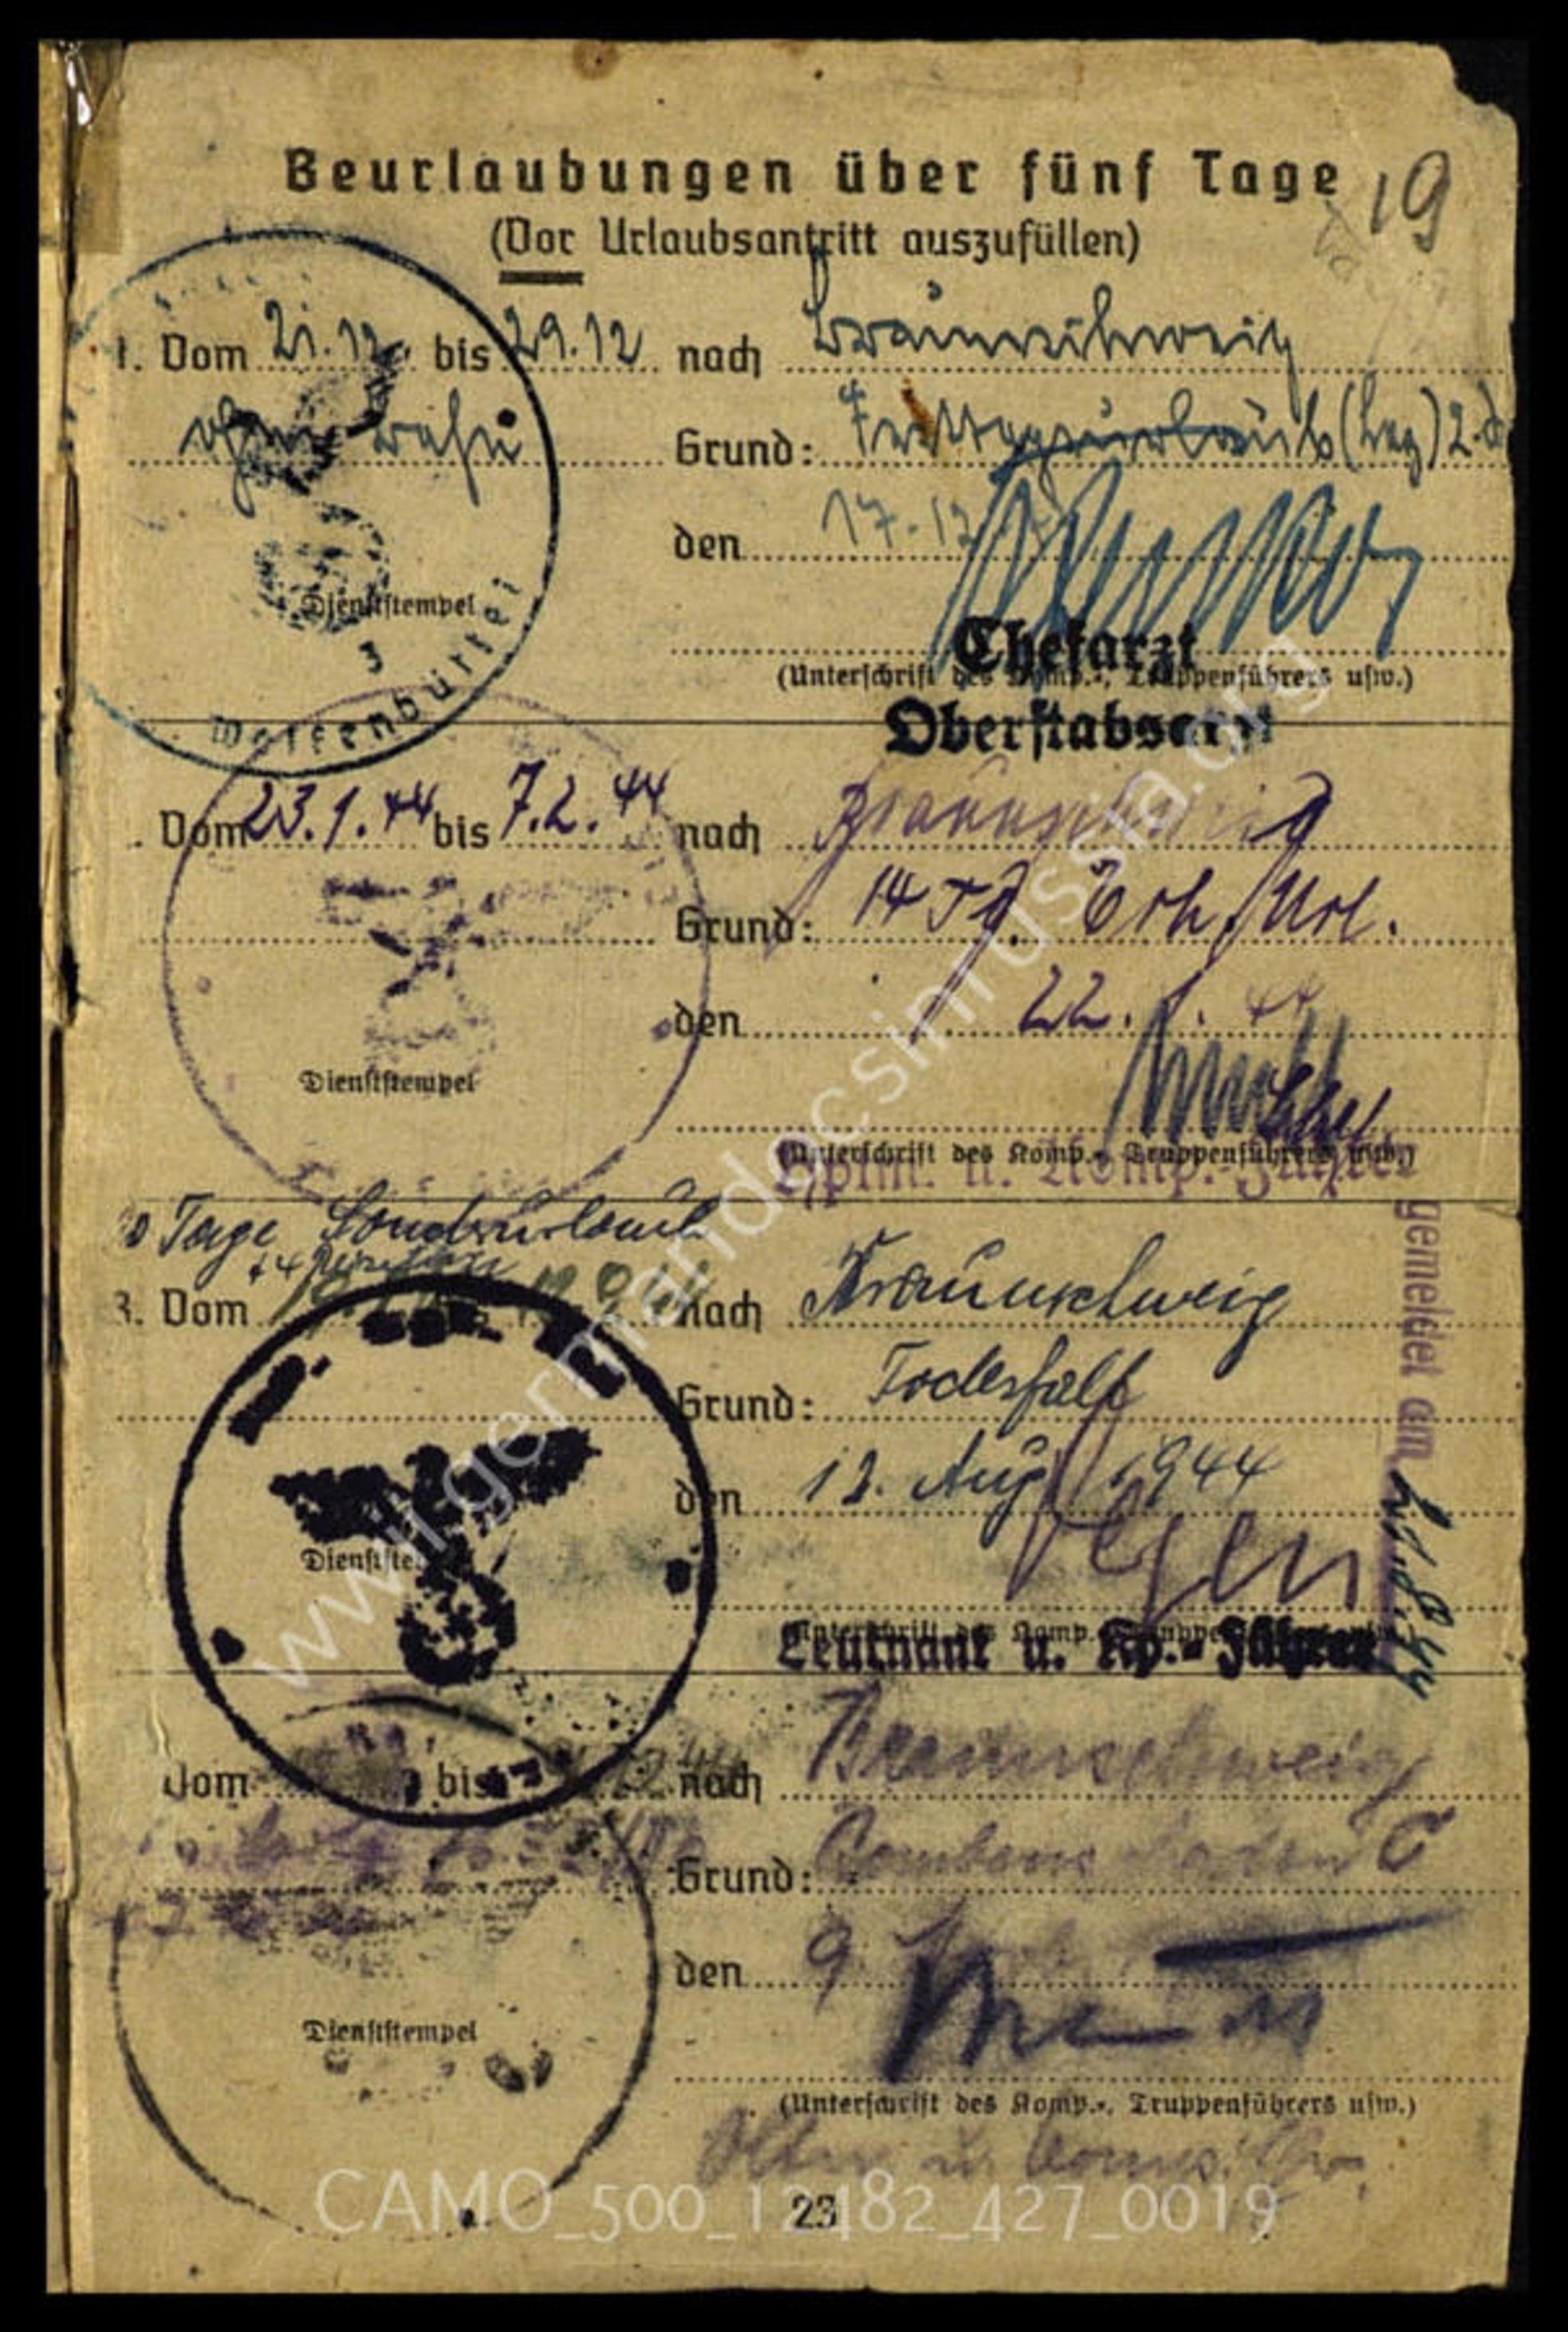 Beurlaubungen über fünf Tage
19
(Vor Urlaubsantritt auszufüllen)
1. Vom 21.12. bis 29.12 nach Braunschweig
Grund: Festtagsurlaub (Laz)
den 17.12
Dienststempel
3
Wolfenbüttel
Chefarzt
(Unterschrift des Komp.-, Truppenführers usw.)
Oberstabsarzt
Vom 23.1.44 bis 7.2.44 nach Braunschweig
Grund: 14 Tg. Erh. Url.
den 22.1.44
Dienststempel
(Unterschrift des Komp.-, Truppenführers usw.)
Hptm. u. Komp.-Führer
Tage Sonderurlaub
3. Vom nach Braunschweig
Grund: Todesfall
den 12. Aug. 1944
gemeldet am
Dienststempel
(Unterschrift des Komp.-, Truppenführers usw.)
Leutnant u. Kp.-Führer
Vom bis nach Braunschweig
Grund: Bombenschaden C
den 9.
Dienststempel
(Unterschrift des Komp.-, Truppenführers usw.)
23
www.germandocsinrussia.org
CAMO_500_12482_427_0019